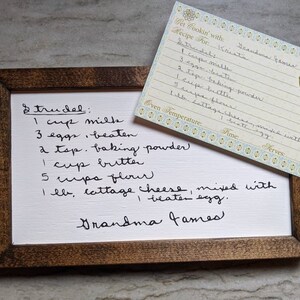 Strudel:
1 cup milk
3 eggs, beaten
2 tsp. baking powder
1 cup butter
5 cups flour
1 lb. cottage cheese, mixed with
1 beaten egg.
Grandma James
Get Cookin' with:
Recipe For:
Grandma James
Strudel:
1 cup milk
3 eggs, beaten
2 tsp. baking powder
1 cup butter
5 cups flour
1 lb. cottage cheese, mixed with
1 beaten egg
Oven Temperature:
Time:
Serves: